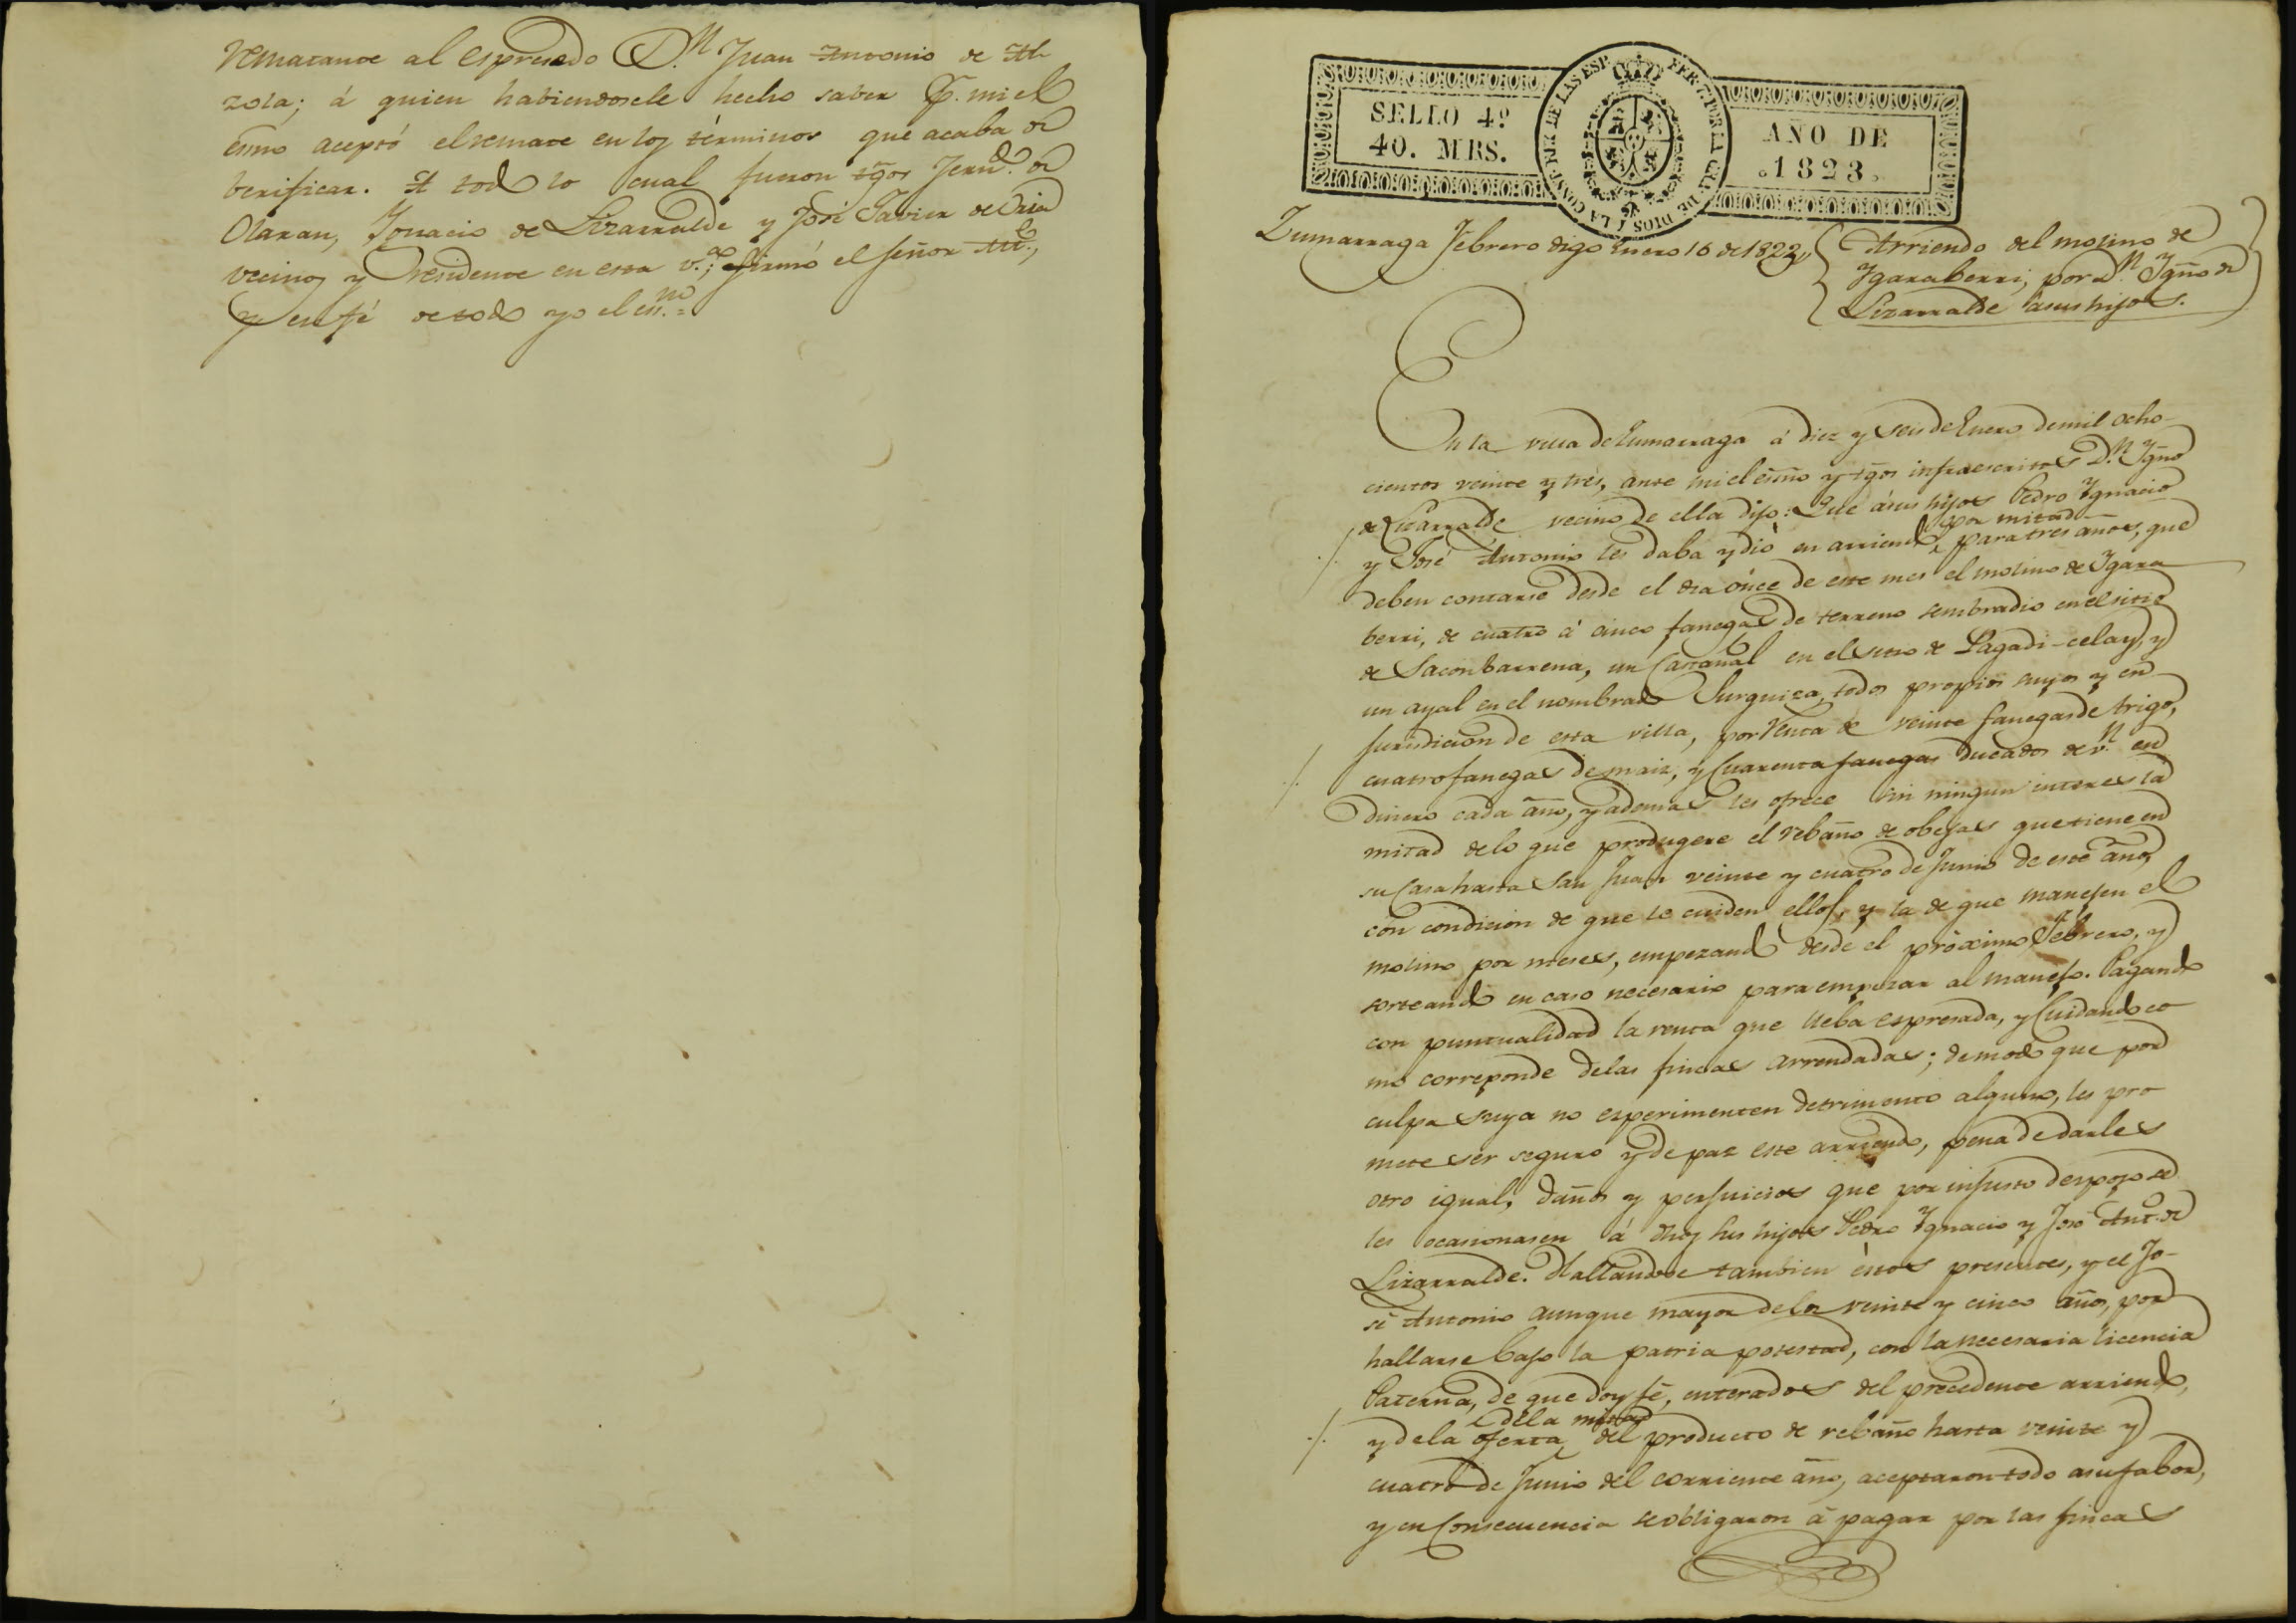 rematante al espresado D.n Juan Antonio de Al
zola; á quien habiendosele hecho saber p.r mi el
esno aceptó el remate en los términos que acaba de
berificar. A todo lo cual fueron tgos Fern.do de
Olaran, Ygnacio de Lizarralde y José Javier de Oria
vecinos y residente en esta v.a; firmó el señor Alc.e,
y en fé de todo yo el es.no =
SELLO 4º
40. MRS.
AÑO DE
.1823.
Zumarraga Febrero digo Enero 16 de 1823,,
Arriendo del molino de
Ygaraberri, por D.n Ygno de
Lizarralde á sus hijos.
En la villa de Zumarraga á diez y seis de Enero de mil ocho-
cientos veinte y tres, ante mi el esno y tgos infraescritos D.n Ygno
de Lizarralde vecino de ella dijo: Que á sus hijos Pedro Ygnacio
por mitad
y José Antonio les daba y dió en arriendo para tres años, que
deben contarse desde el dia once de este mes el molino de Ygara
berri, de cuatro á cinco fanegas de terreno sembradio en el sitio
de Saconbarrena, un Castañal en el sitio de Pagadi-celay, y
un ayal en el nombrado Surguiza, todos propios suyos y en
Jurisdicion de esta villa, por Renta de veinte fanegas de trigo,
cuatro fanegas de maiz, y Cuarenta fanegas ducados de v.n en
dinero cada año, y ademas les ofrece sin ningun interes la
mitad de lo que produgere el rebaño de obejas que tiene en
su Casa hasta San Juan veinte y cuatro de Junio de este año,
con condicion de que le cuiden ellos, y la de que manejen el
molino por meses, empezando desde el próximo Febrero, y
sorteando en caso necesario para empezar al manejo. Pagando
con puntualidad la renta que lleba espresada, y Cuidando co
mo correponde de las fincas arrendadas; de modo que por
culpa suya no esperimenten detrimento alguno, les pro
mete ser seguro y de paz este arriendo, pena de darles
otro igual, daños y perjuicios que por injusto despojo se
les ocasionasen á dhos sus hijos Pedro Ygnacio y José Ant.o de
Lizarralde. Hallandose tambien éstos presentes, y el Jo-
sé Antonio aunque mayor de los veinte y cinco años, por
hallarse bajo la patria potestad, con la necesaria licencia
Paterna, de que doy fé, enterados del precedente arriendo,
de la mitad
y de la oferta del producto de rebaño hasta veinte y
cuatro de Junio del corriente año, aceptaron todo a su fabor,
y en Consecuencia se obligaron á pagar por las fincas